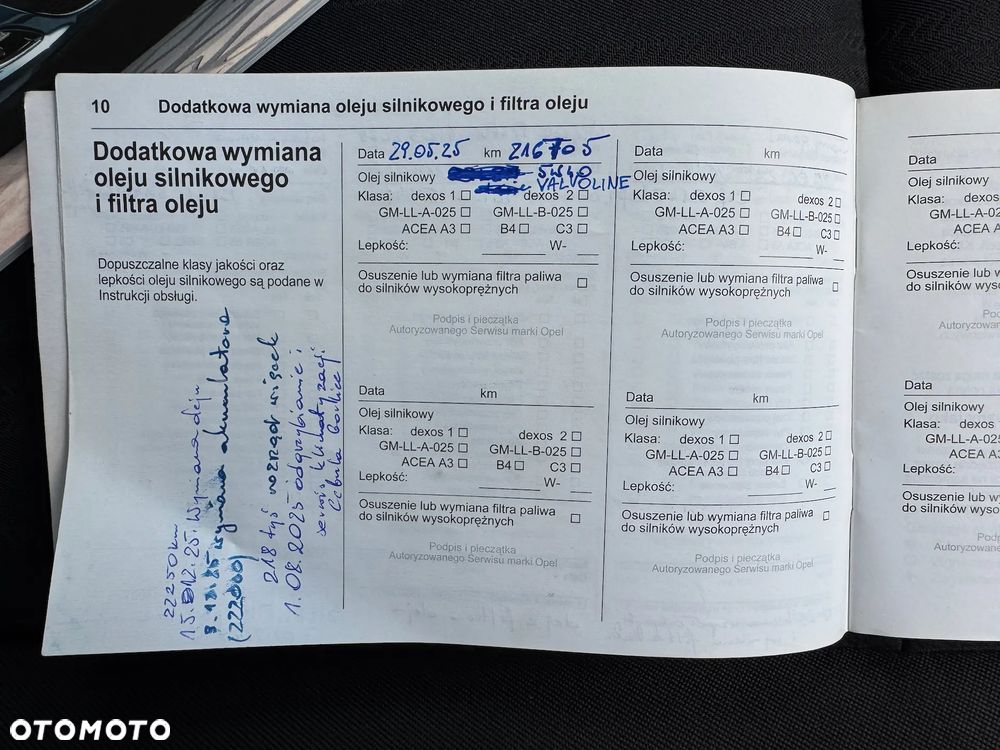 10 Dodatkowa wymiana oleju silnikowego i filtra oleju
Dodatkowa wymiana
oleju silnikowego
i filtra oleju
Dopuszczalne klasy jakości oraz
lepkości oleju silnikowego są podane w
Instrukcji obsługi.
22250km
15.12.25. Wymiana oleju
wymiana akumulatora
(222000)
218 tyś rozrząd
1.08.2025 odgrzybianie i
serwis klimatyzacji
Data 29.05.25 km 216705
Olej silnikowy 5W40
VALVOLINE
Klasa: dexos 1 dexos 2
GM-LL-A-025 GM-LL-B-025
ACEA A3 B4 C3
Lepkość: W-
Osuszenie lub wymiana filtra paliwa
do silników wysokoprężnych
Podpis i pieczątka
Autoryzowanego Serwisu marki Opel
Data km
Olej silnikowy
Klasa: dexos 1 dexos 2
GM-LL-A-025 GM-LL-B-025
ACEA A3 B4 C3
Lepkość: W-
Osuszenie lub wymiana filtra paliwa
do silników wysokoprężnych
Podpis i pieczątka
Autoryzowanego Serwisu marki Opel
Data km
Olej silnikowy
Klasa: dexos 1 dexos 2
GM-LL-A-025 GM-LL-B-025
ACEA A3 B4 C3
Lepkość: W-
Osuszenie lub wymiana filtra paliwa
do silników wysokoprężnych
Podpis i pieczątka
Autoryzowanego Serwisu marki Opel
Data km
Olej silnikowy
Klasa: dexos 1 dexos 2
GM-LL-A-025 GM-LL-B-025
ACEA A3 B4 C3
Lepkość: W-
Osuszenie lub wymiana filtra paliwa
do silników wysokoprężnych
Podpis i pieczątka
Autoryzowanego Serwisu marki Opel
Data
Olej silnikowy
Klasa: d
GM-LL-A-02
ACEA A
Lepkość:
Osuszenie lub w
do silników wyso
Autoryzowa
Data
Olej silnikowy
Klasa:
GM-LL-A-0
ACEA
Lepkość:
Osuszenie lub
do silników wys
Autoryzow
OTOMOTO